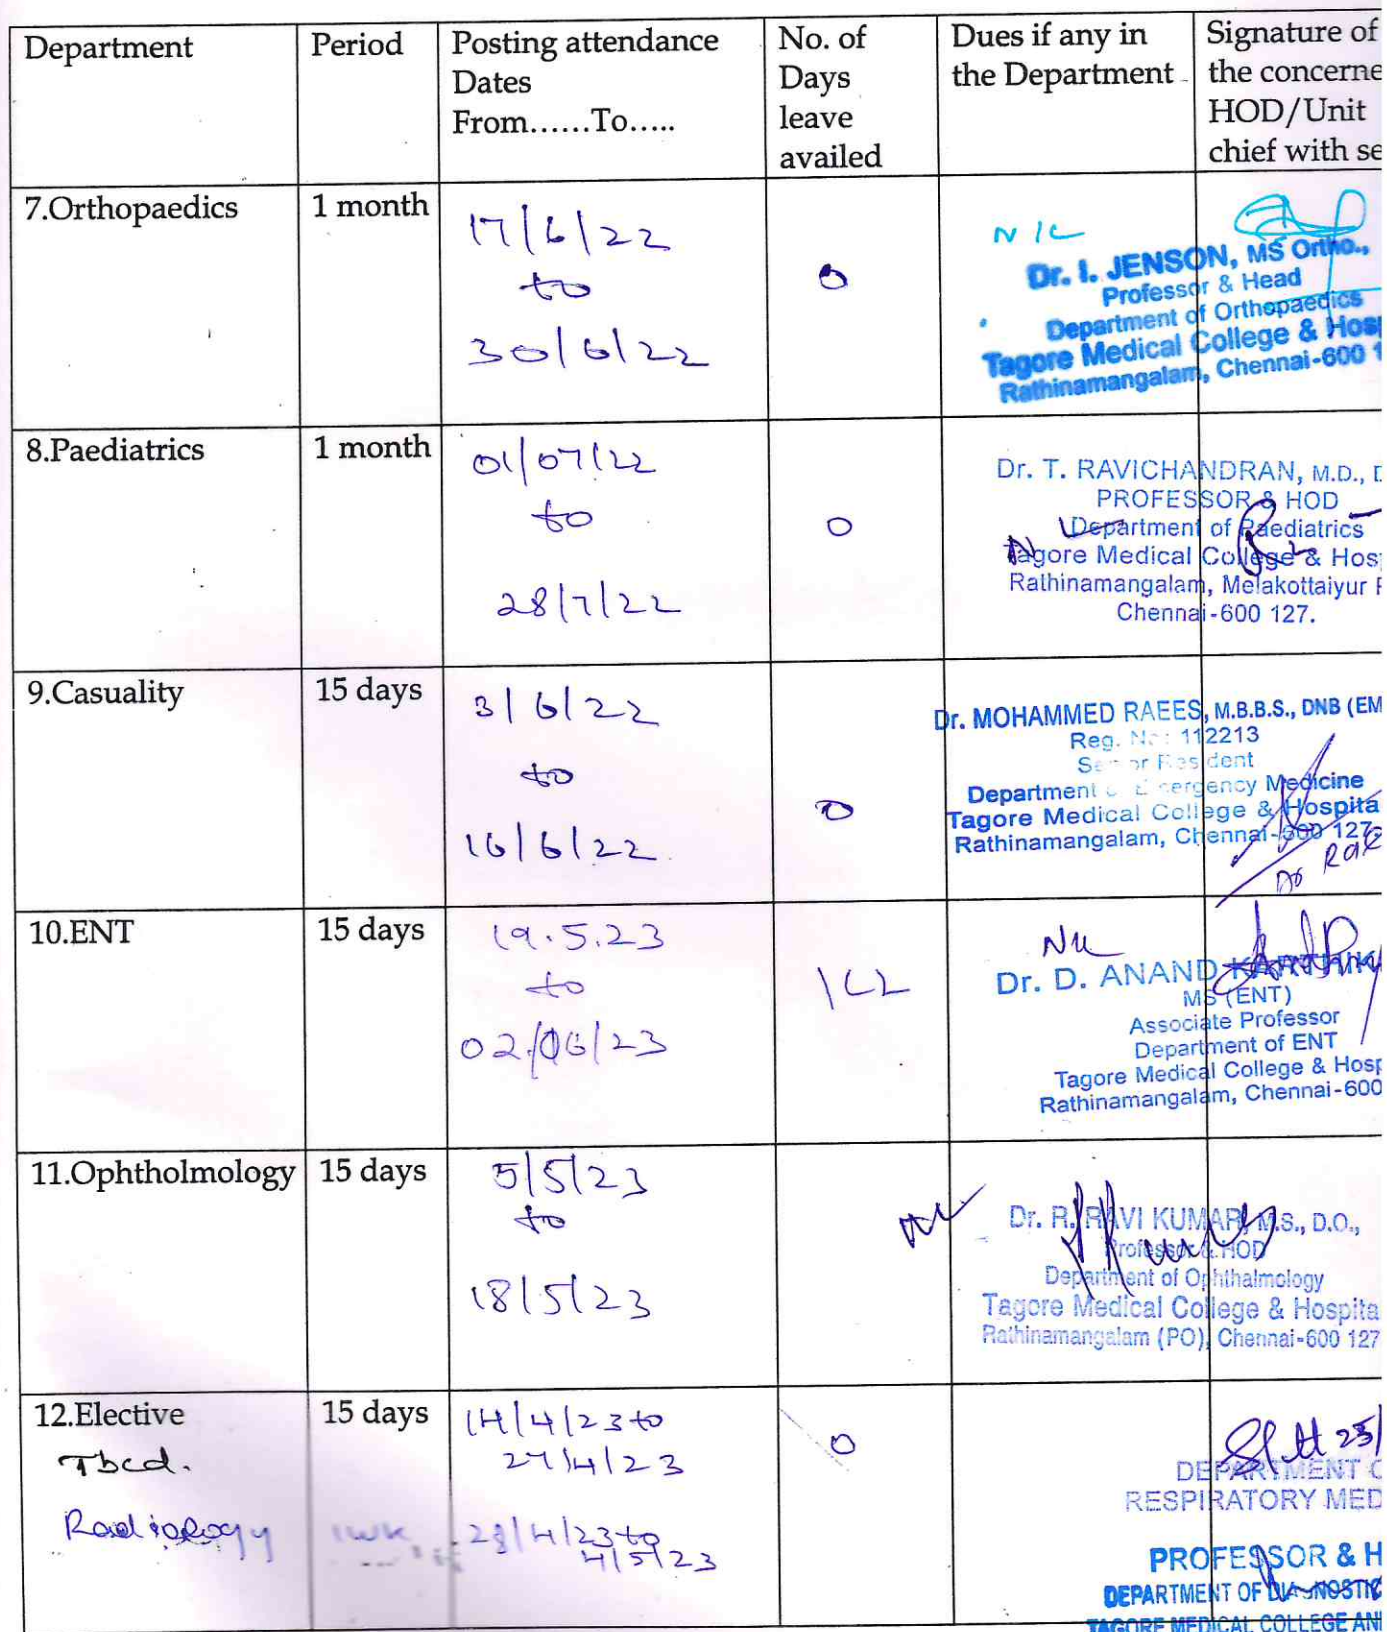 Department Period Posting attendance Dates From......To..... No. of Days leave availed Dues if any in the Department Signature of the concerne HOD/Unit chief with se
7.Orthopaedics 1 month
17/6/22
to
30/6/22
0
NIL
Dr. I. JENSON, MS Ortho.,
Professor & Head
Department of Orthopaedics
Tagore Medical College & Hosp
Rathinamangalam, Chennai-600 1
8.Paediatrics 1 month
01/07/22
to
28/7/22
0
Dr. T. RAVICHANDRAN, M.D., D
PROFESSOR & HOD
Department of Paediatrics
Tagore Medical College & Hosp
Rathinamangalam, Melakottaiyur P
Chennai-600 127.
9.Casuality 15 days
3/6/22
to
16/6/22
0
Dr. MOHAMMED RAEES, M.B.B.S., DNB (EM
Reg. No: 112213
Senior Resident
Department of Emergency Medicine
Tagore Medical College & Hospita
Rathinamangalam, Chennai-600 127
10.ENT 15 days
19.5.23
to
02/06/23
1CL
Nil
Dr. D. ANAND KARTHIK
MS (ENT)
Associate Professor
Department of ENT
Tagore Medical College & Hosp
Rathinamangalam, Chennai-600
11.Ophtholmology 15 days
5/5/23
to
18/5/23
Nil
Dr. R. RAVI KUMAR, M.S., D.O.,
Professor & HOD
Department of Ophthalmology
Tagore Medical College & Hospita
Rathinamangalam (PO), Chennai-600 127
12.Elective 15 days
Tbcd.
14/4/23 to
27/4/23
0
25/
DEPARTMENT O
RESPIRATORY MED
Radiology 1WK 28/4/23 to
4/5/23
PROFESSOR & H
DEPARTMENT OF DIAGNOSTIC
TAGORE MEDICAL COLLEGE AN